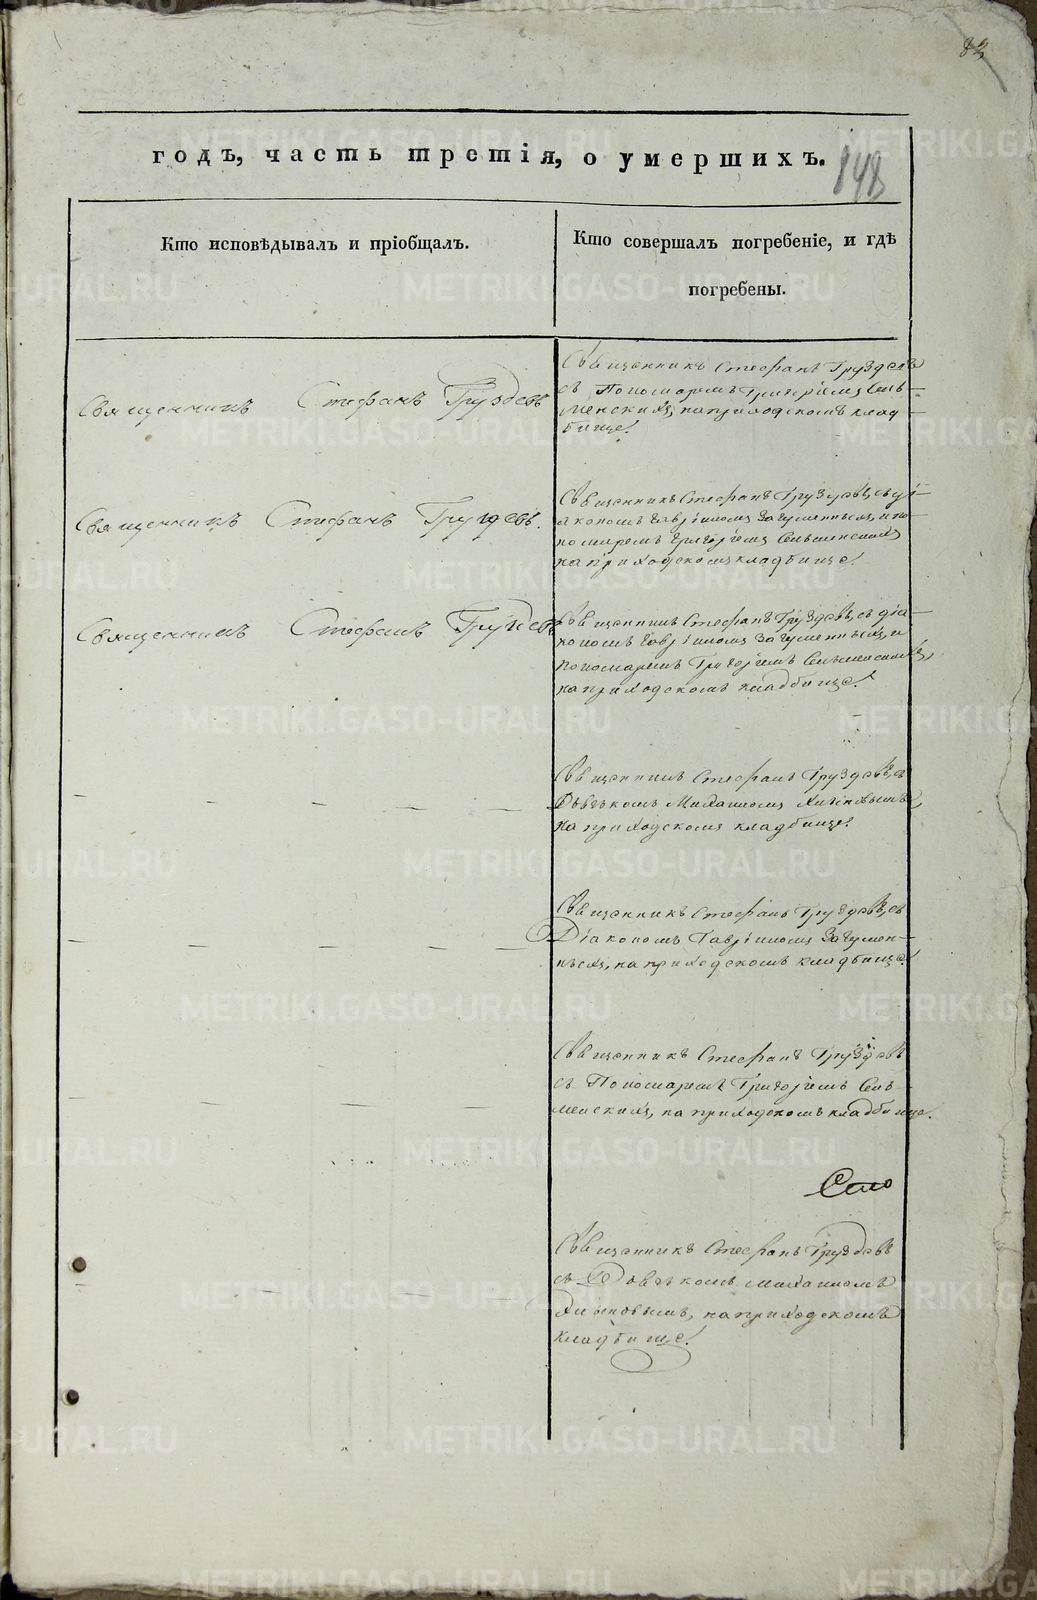 83
годъ, часть третія, о умершихъ.
148
Кто исповѣдывалъ и пріобщалъ.
Кто совершалъ погребеніе, и гдѣ
погребены.
Священникъ Стефанъ Груздевъ
Священникъ Стефанъ Груздевъ
съ Пономаремъ Григоріемъ Сель-
менскихъ, на приходскомъ клад-
бище!
Священникъ Стефанъ Груздевъ.
Священникъ Стефанъ Груздевъ, съ ді-
акономъ Гавріиломъ Загуменныхъ, и по-
номаремъ Григоріемъ
на приходскомъ кладбище!
Священникъ Стефанъ Груздевъ
Священникъ Стефанъ Груздевъ, съ діа-
кономъ Гавріиломъ Загуменныхъ, и
Пономаремъ Григоріемъ
на приходскомъ кладбище!
Священникъ Стефанъ Груздевъ, съ
Дьячкомъ Михаиломъ
на приходскомъ кладбище!
Священникъ Стефанъ Груздевъ, съ
Діакономъ Гавріиломъ Загумен-
ныхъ, на приходскомъ кладбище!
Священникъ Стефанъ Груздевъ
съ Пономаремъ Григоріемъ
менскихъ, на приходскомъ кладбище.
Священникъ Стефанъ Груздевъ
съ Дьячкомъ Михаиломъ
на приходскомъ
кладбище!
METRIKI.GASO-URAL.RU